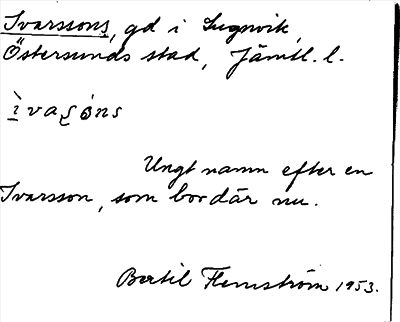 Ivarssons, gd i Lugnvik,
Östersunds stad, Jämtl. l.
ìvaʂóns
Ungt namn efter en
Ivarsson, som bor där nu.
Bertil Flemström 1953.